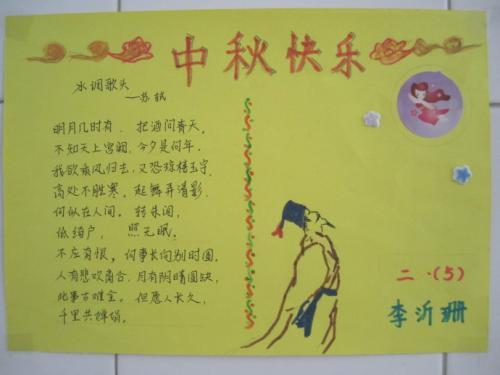 中秋快乐
水调歌头
——苏轼
明月几时有，把酒问青天，
不知天上宫阙，今夕是何年，
我欲乘风归去，又恐琼楼玉宇，
高处不胜寒，起舞弄清影，
何似在人间。转朱阁，
低绮户，照无眠，
不应有恨，何事长向别时圆，
人有悲欢离合，月有阴晴圆缺，
此事古难全。但愿人长久，
千里共婵娟。
二·(5)
李沂珊